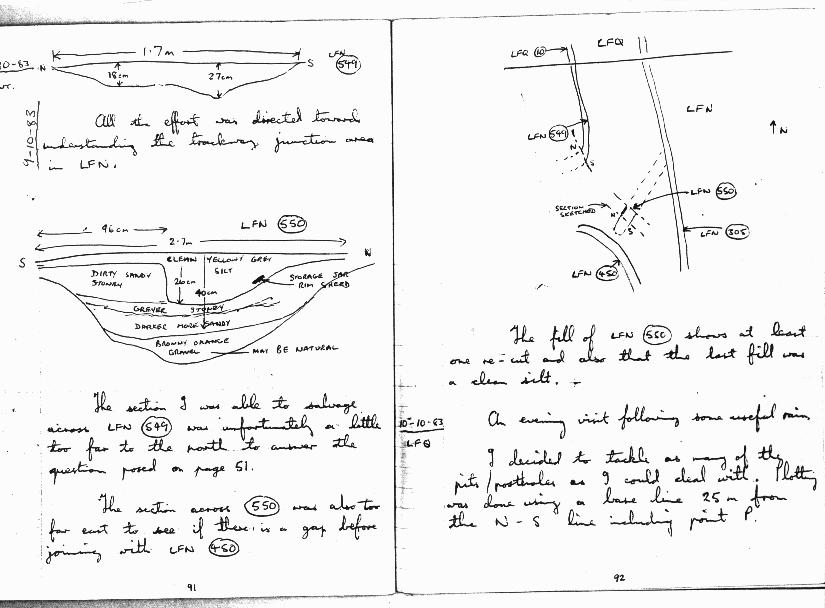 1.7m
LFN
549
10-83
N
S
18cm
27cm
9-10-83
All the effort was directed towards
understanding the trackway junction area
in LFN.
LFN 550
96cm
2.7m
S
N
CLEAN YELLOWY GREY
SILT
DIRTY SANDY
STONEY
26cm
40cm
STORAGE JAR
RIM SHERD
GREYER STONEY
DARKER MORE SANDY
BROWNY ORANGE
GRAVEL MAY BE NATURAL
The section I was able to salvage
across LFN 549 was unfortunately a little
too far to the north to answer the
question posed on page 51.
The section across 550 was also too
far east to see if there is a gap before
joining with LFN 450
91
LFQ 10
LFQ
LFN
N
LFN 549
N
S
LFN 550
SECTION
SKETCHED
N
S
LFN 305
LFN 450
The fill of LFN 550 shows at least
one re-cut and also that the last fill was
a clean silt.
10-10-83
LFQ
An evening visit following some useful rain
I decided to tackle as many of the
pits/postholes as I could deal with. Plotting
was done using a base line 25m from
the N-S line including point P.
92